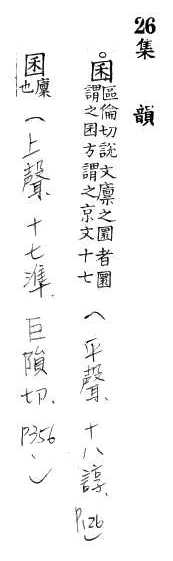 26集韻
。囷 區倫切說文廩之圜者圜謂之囷方謂之京文十七 (平聲、十八諄、P.126)
囷 廩也 (上聲、十七準、巨隕切、P356、)